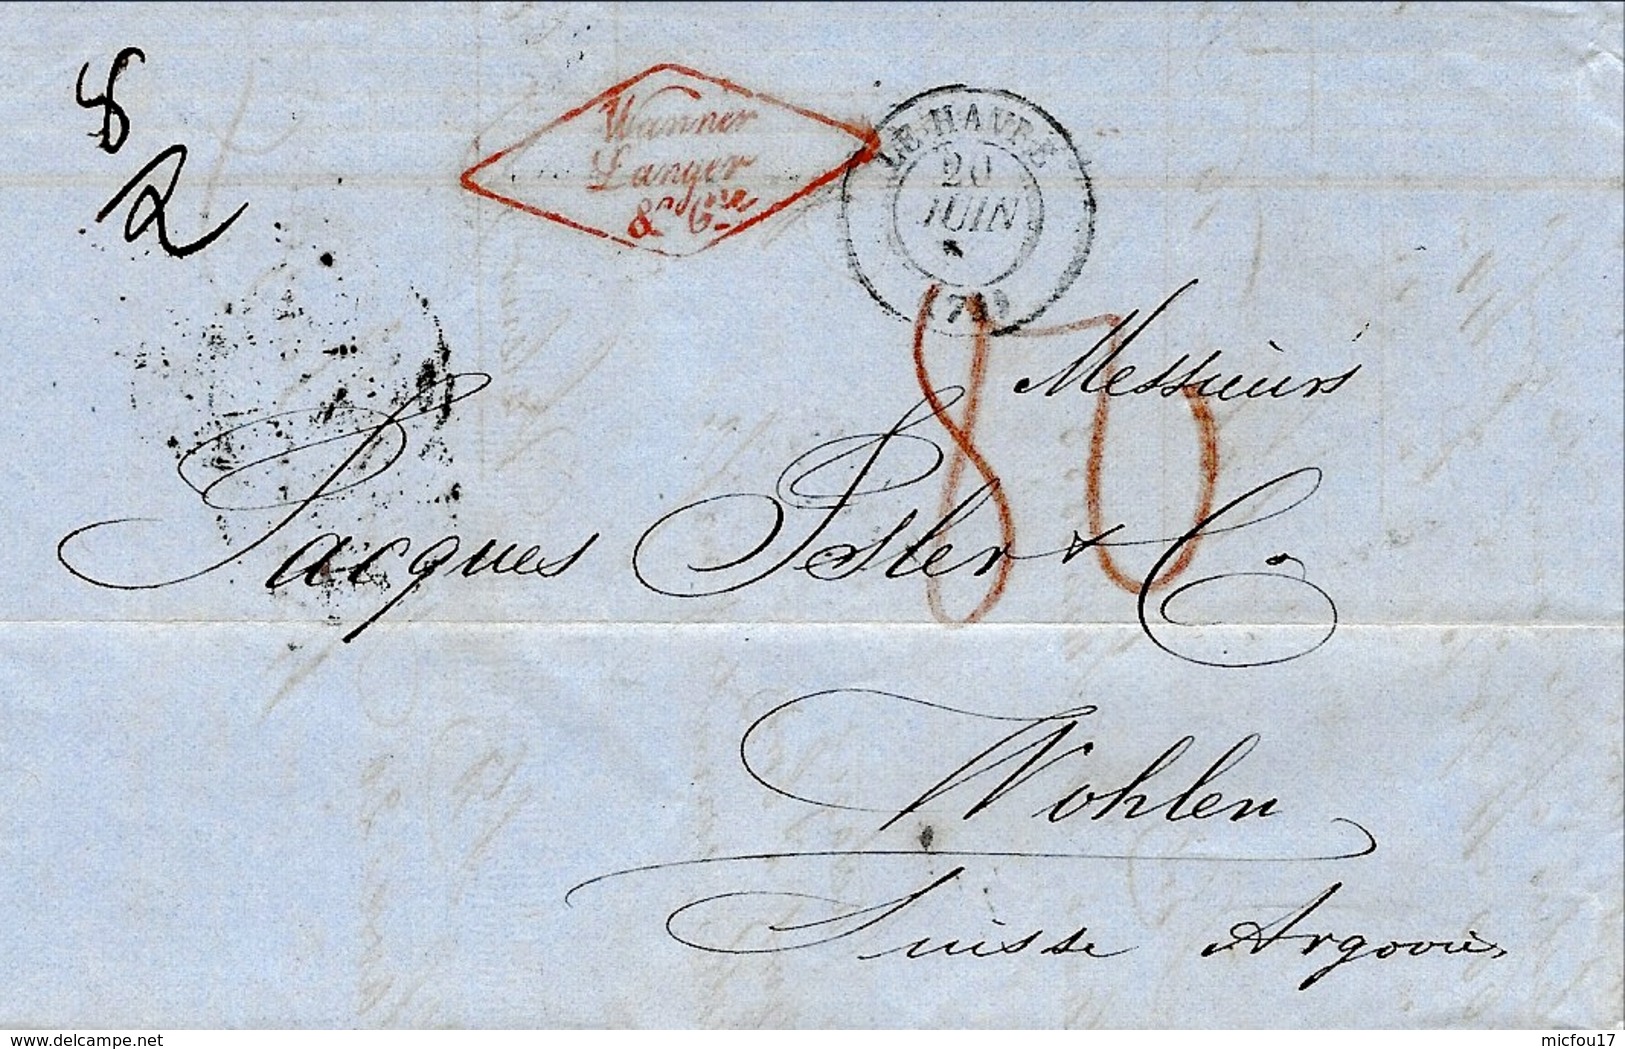 8
2
Wanner
Langer
& Cie
LE HAVRE
20
JUIN
80
Messieurs
Jacques Isler & Co
Wohlen
Suisse Argovie
delcampe.net
micfou17